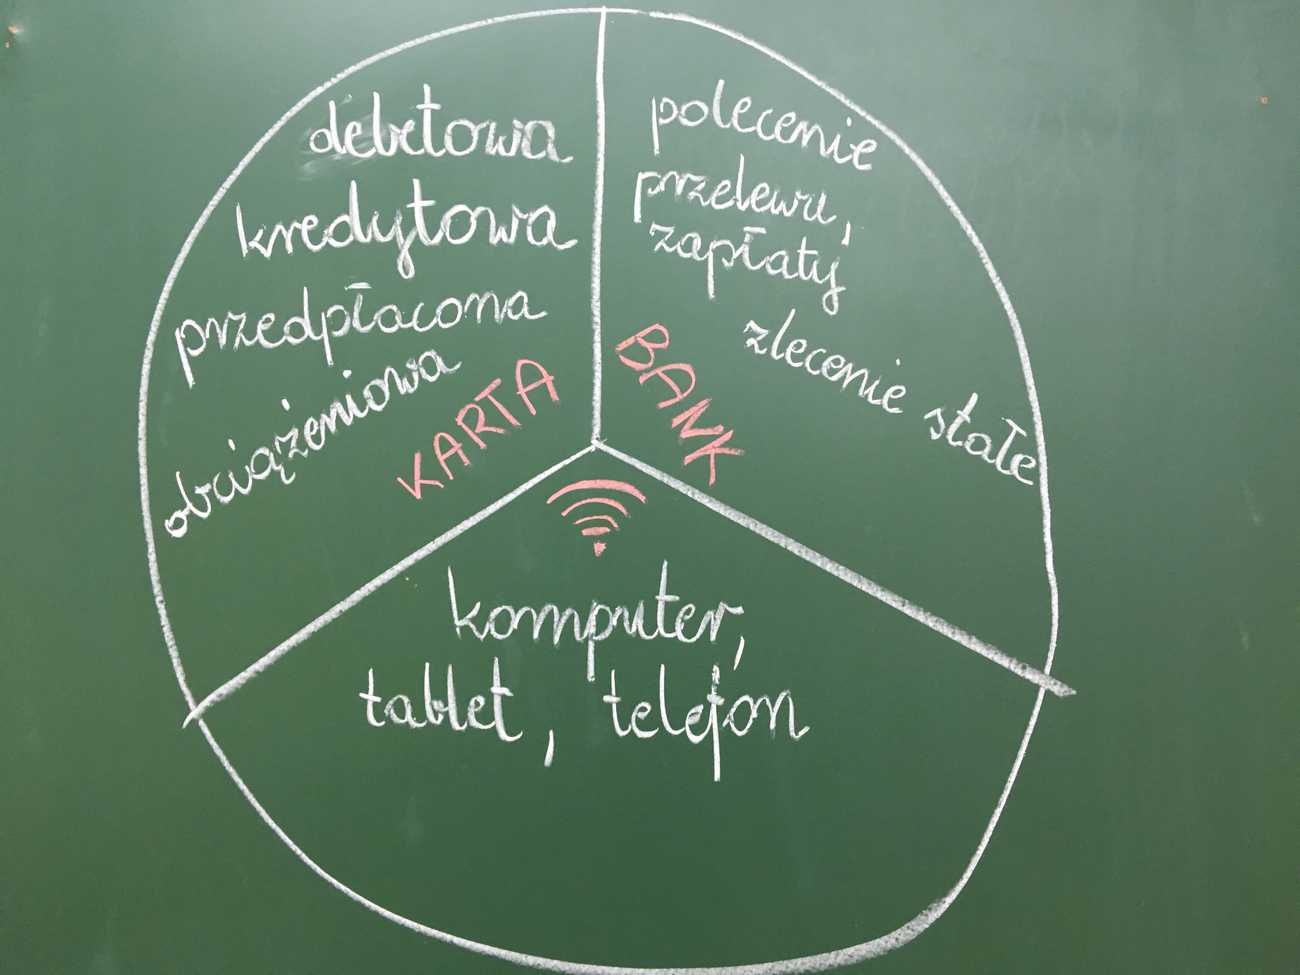 debetowa
kredytowa
przedpłacona
obciążeniowa
KARTA
polecenie
przelewu,
zapłaty
zlecenie stałe
BANK
komputer,
tablet, telefon